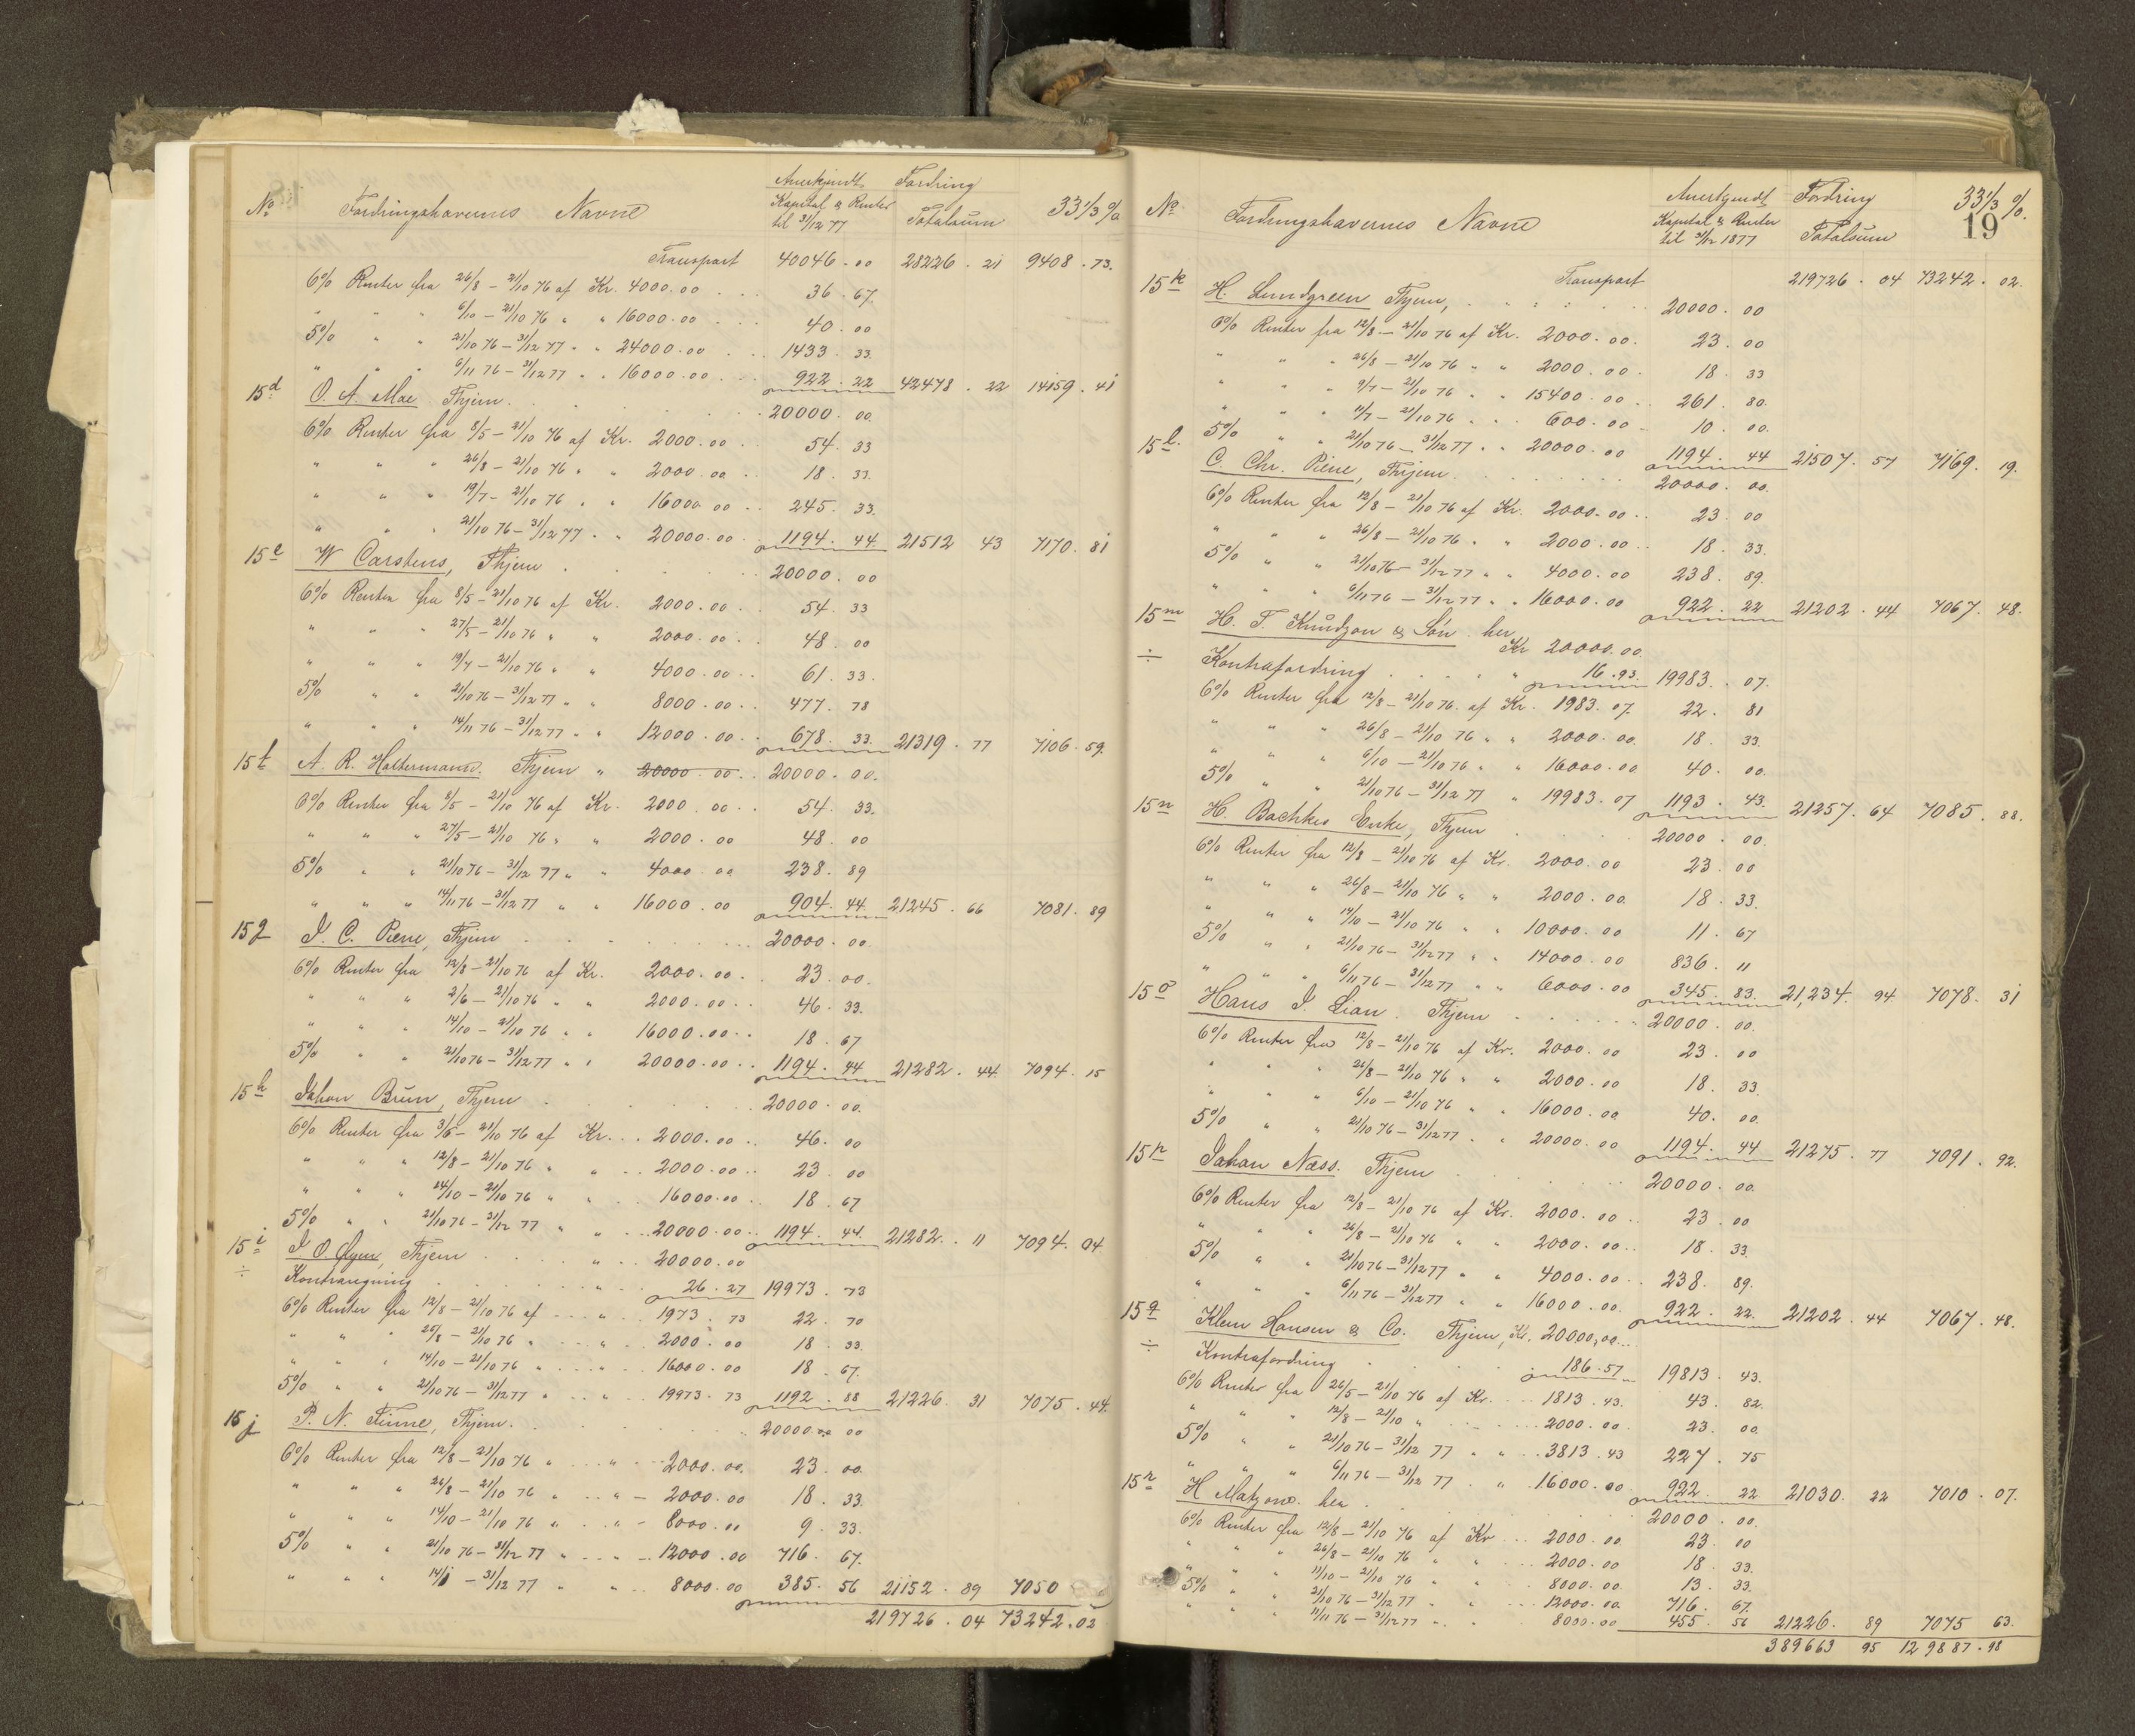 No Fordringshavernes Navne Anerkjendt Fordring 33 1/3 %
Kapital & Renter til 31/12 77 Totalsum
Transport 40046.00 28226.21 9408.73.
6% Renter fra 26/8 - 21/10 76 af Kr. 4000.00 36.67.
" " " 6/10 - 21/10 76 " " 16000.00 40.00
5% " " 21/10 76 - 31/12 77 " " 24000.00 1433.33.
" " " 6/11 76 - 31/12 77 " " 16000.00 922.22 42478.22 14159.41
15d O. A. Moe Thjem. 20000.00.
6% Renter fra 8/5 - 21/10 76 af Kr. 2000.00 54.33
" " " 26/8 - 21/10 76 " " 2000.00 18.33.
" " " 19/7 - 21/10 76 " " 16000.00 245.33.
" " " 21/10 76 - 31/12 77 " " 20000.00 1194.44. 21512.43 7170.81
15e W Carstens, Thjem 20000.00
6% Renter fra 8/5 - 21/10 76 af Kr. 2000.00 54.33
" " " 27/5 - 21/10 76 " " 2000.00 48.00
" " " 19/7 - 21/10 76 " " 4000.00 61.33.
5% " " 21/10 76 - 31/12 77 " " 8000.00 477.78
" " " 14/11 76 - 31/12 77 " " 12000.00 678.33. 21319.77 7106.59.
15f A. R. Holtermann. Thjem " 20000.00 20000.00.
6% Renter fra 8/5 - 21/10 76 af Kr. 2000.00 54.33.
" " " 27/5 - 21/10 76 " " 2000.00 48.00
5% " " 21/10 76 - 31/12 77 " " 4000.00 238.89
" " " 14/11 76 - 31/12 77 " " 16000.00 904.44. 21245.66 7081.89
15g I. C. Piene, Thjem 20000.00.
6% Renter fra 12/8 - 21/10 76 af Kr. 2000.00 23.00.
" " " 2/6 - 21/10 76 " " 2000.00 46.33.
" " " 14/10 - 21/10 76 " " 16000.00 18.67
5% " " 21/10 76 - 31/12 77 " " 20000.00 1194.44 21282.44. 7094.15
15h Johan Brun, Thjem 20000.00.
6% Renter fra 3/6 - 21/10 76 af Kr. 2000.00 46.00
" " " 12/8 - 21/10 76 " " 2000.00 23.00
" " " 14/10 - 21/10 76 " " 16000.00 18.67
5% " " 21/10 76 - 31/12 77 " " 20000.00 1194.44. 21282.11 7094.04.
15i I O Øyen, Thjem " 20000.00
÷ Kontraregning " 26.27 19973.73
6% Renter fra 12/8 - 21/10 76 af " 1973.73 22.70
" " " 26/8 - 21/10 76 " " 2000.00 18.33.
" " " 14/10 - 21/10 76 " " 16000.00 18.67.
5% " " 21/10 76 - 31/12 77 " " 19973.73 1192.88 21226.31 7075.44.
15j P. N. Finne, Thjem. 20000.00
6% Renter fra 12/8 - 21/10 76 " " 2000.00. 23.00.
" " " 26/8 - 21/10 76 " " 2000.00 18.33.
" " " 14/10 - 21/10 76 " " 8000.00 9.33.
5% " " 21/10 76 - 31/12 77 " " 12000.00 716.67.
" " " - 31/12 77 " " 8000.00 385.56 21152.89 7050
219726.04 73242.02
No Fordringshavernes Navne Anerkjendt Fordring 33 1/3 %.
Kapital & Renter til 31/12 1877 Totalsum 19
Transport 219726.04 73242.02.
15k H. Lundgreen Thjem, 20000.00
6% Renter fra 12/8 - 21/10 76 af Kr. 2000.00. 23.00
" " " 26/8 - 21/10 76 " " 2000.00 18.33
" " " 9/7 - 21/10 76 " " 15400.00 261.80.
" " " 11/7 - 21/10 76 " " 600.00 10.00.
5% " " 21/10 76 - 31/12 77 " " 20000.00 1194.44 21507.57 7169.19.
15l. C. Chr. Piene, Thjem. 20000.00.
6% Renter fra 12/8 - 21/10 76 af Kr. 2000.00 23.00
" " " 26/8 - 21/10 76 " " 2000.00 18.33.
5% " " 21/10 76 - 31/12 77 " " 4000.00 238.89.
" " " 6/11 76 - 31/12 77 " " 16000.00 922.22 21202.44 7067.48.
15m H. F. Knudzon & Søn her Kr 20000.00.
÷ Kontrafordring " 16.93. 19983.07.
6% Renter fra 12/8 - 21/10 76. af Kr. 1983.07. 22.81
" " " 26/8 - 21/10 76 " " 2000.00. 18.33.
" " " 6/10 - 21/10 76 " " 16000.00. 40.00.
5% " " 21/10 76 - 31/12 77 " 19983.07 1193.43. 21257.64 7085.88.
15n H. Bachkes Enke, Thjem 20000.00.
6% Renter fra 12/8 - 21/10 76 af Kr. 2000.00 23.00
" " " 26/8 - 21/10 76 " " 2000.00. 18.33.
" " " 14/10 - 21/10 76 " " 10000.00 11.67
5% " " 21/10 76 - 31/12 77 " " 14000.00 836.11
" " " 6/11 76 - 31/12 77 " " 6000.00 345.83. 21,234.94. 7078.31
15o Hans I. Lian. Thjem 20000.00.
6% Renter fra 12/8 - 21/10 76 af Kr. 2000.00 23.00
" " " 26/8 - 21/10 76 " " 2000.00 18.33.
" " " 6/10 - 21/10 76 " " 16000.00 40.00.
5% " " 21/10 76 - 31/12 77 " " 20000.00 1194.44 21275.77 7091.92.
15p Johan Næss. Thjem 20000.00.
6% Renter fra 12/8 - 21/10 76 af Kr. 2000.00 23.00
" " " 26/8 - 21/10 76 " " 2000.00 18.33.
5% " " 21/10 76 - 31/12 77 " " 4000.00 238.89.
" " " 6/11 76 - 31/12 77 " " 16000.00. 922.22. 21202.44 7067.48.
15q Klem Hansen & Co. Thjem, Kr. 20000,00
÷ Kontrafordring 186.57 19813.43.
6% Renter fra 26/5 - 21/10 76 af Kr. 1813.43. 43.82.
" " " 12/8 - 21/10 " 2000.00. 23.00.
5% " " 21/10 76 - 31/12 77 " " 3813.43 227.75
" " " 6/11 76 - 31/12 77 " " 16000.00. 922.22 21030.22 7010.07.
15r H Matzow. her 20000.00.
6% Renter fra 12/8 - 21/10 76 af Kr 2000.00. 23.00
" " " 26/8 - 21/10 76 " " 2000.00 18.33.
" " " 11/10 - 21/10 76 " " 8000.00. 13.33.
5% " " 21/10 76 - 31/12 77 " " 12000.00. 716.67.
" " " 11/11 76 - 31/12 77 " " 8000.00 455.56 21226.89 7075 63.
389663 95 129887.98